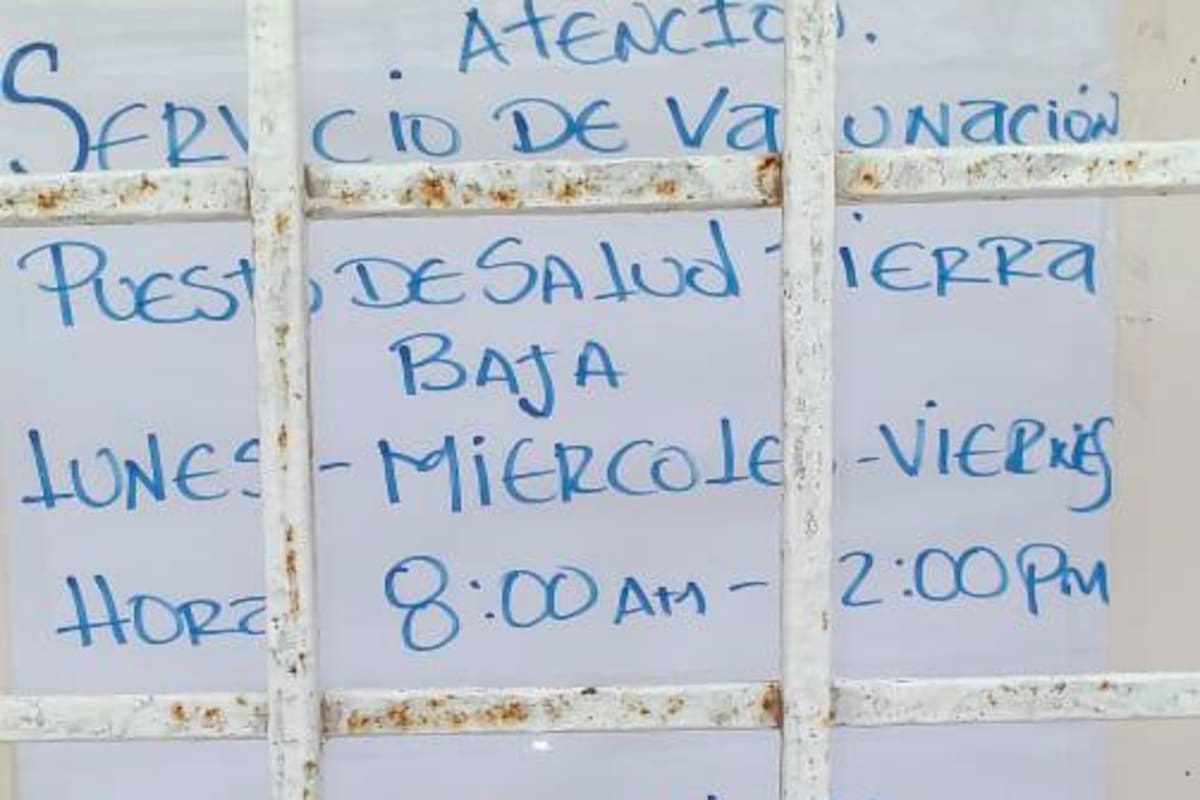 ATENCION.
SERVICIO DE VacUNación
PUESTO DE SAlUd TiERRa
BAJA
LUNES - MiERCOLES - VIERNES
HORa 8:00 AM - 2:00 PM